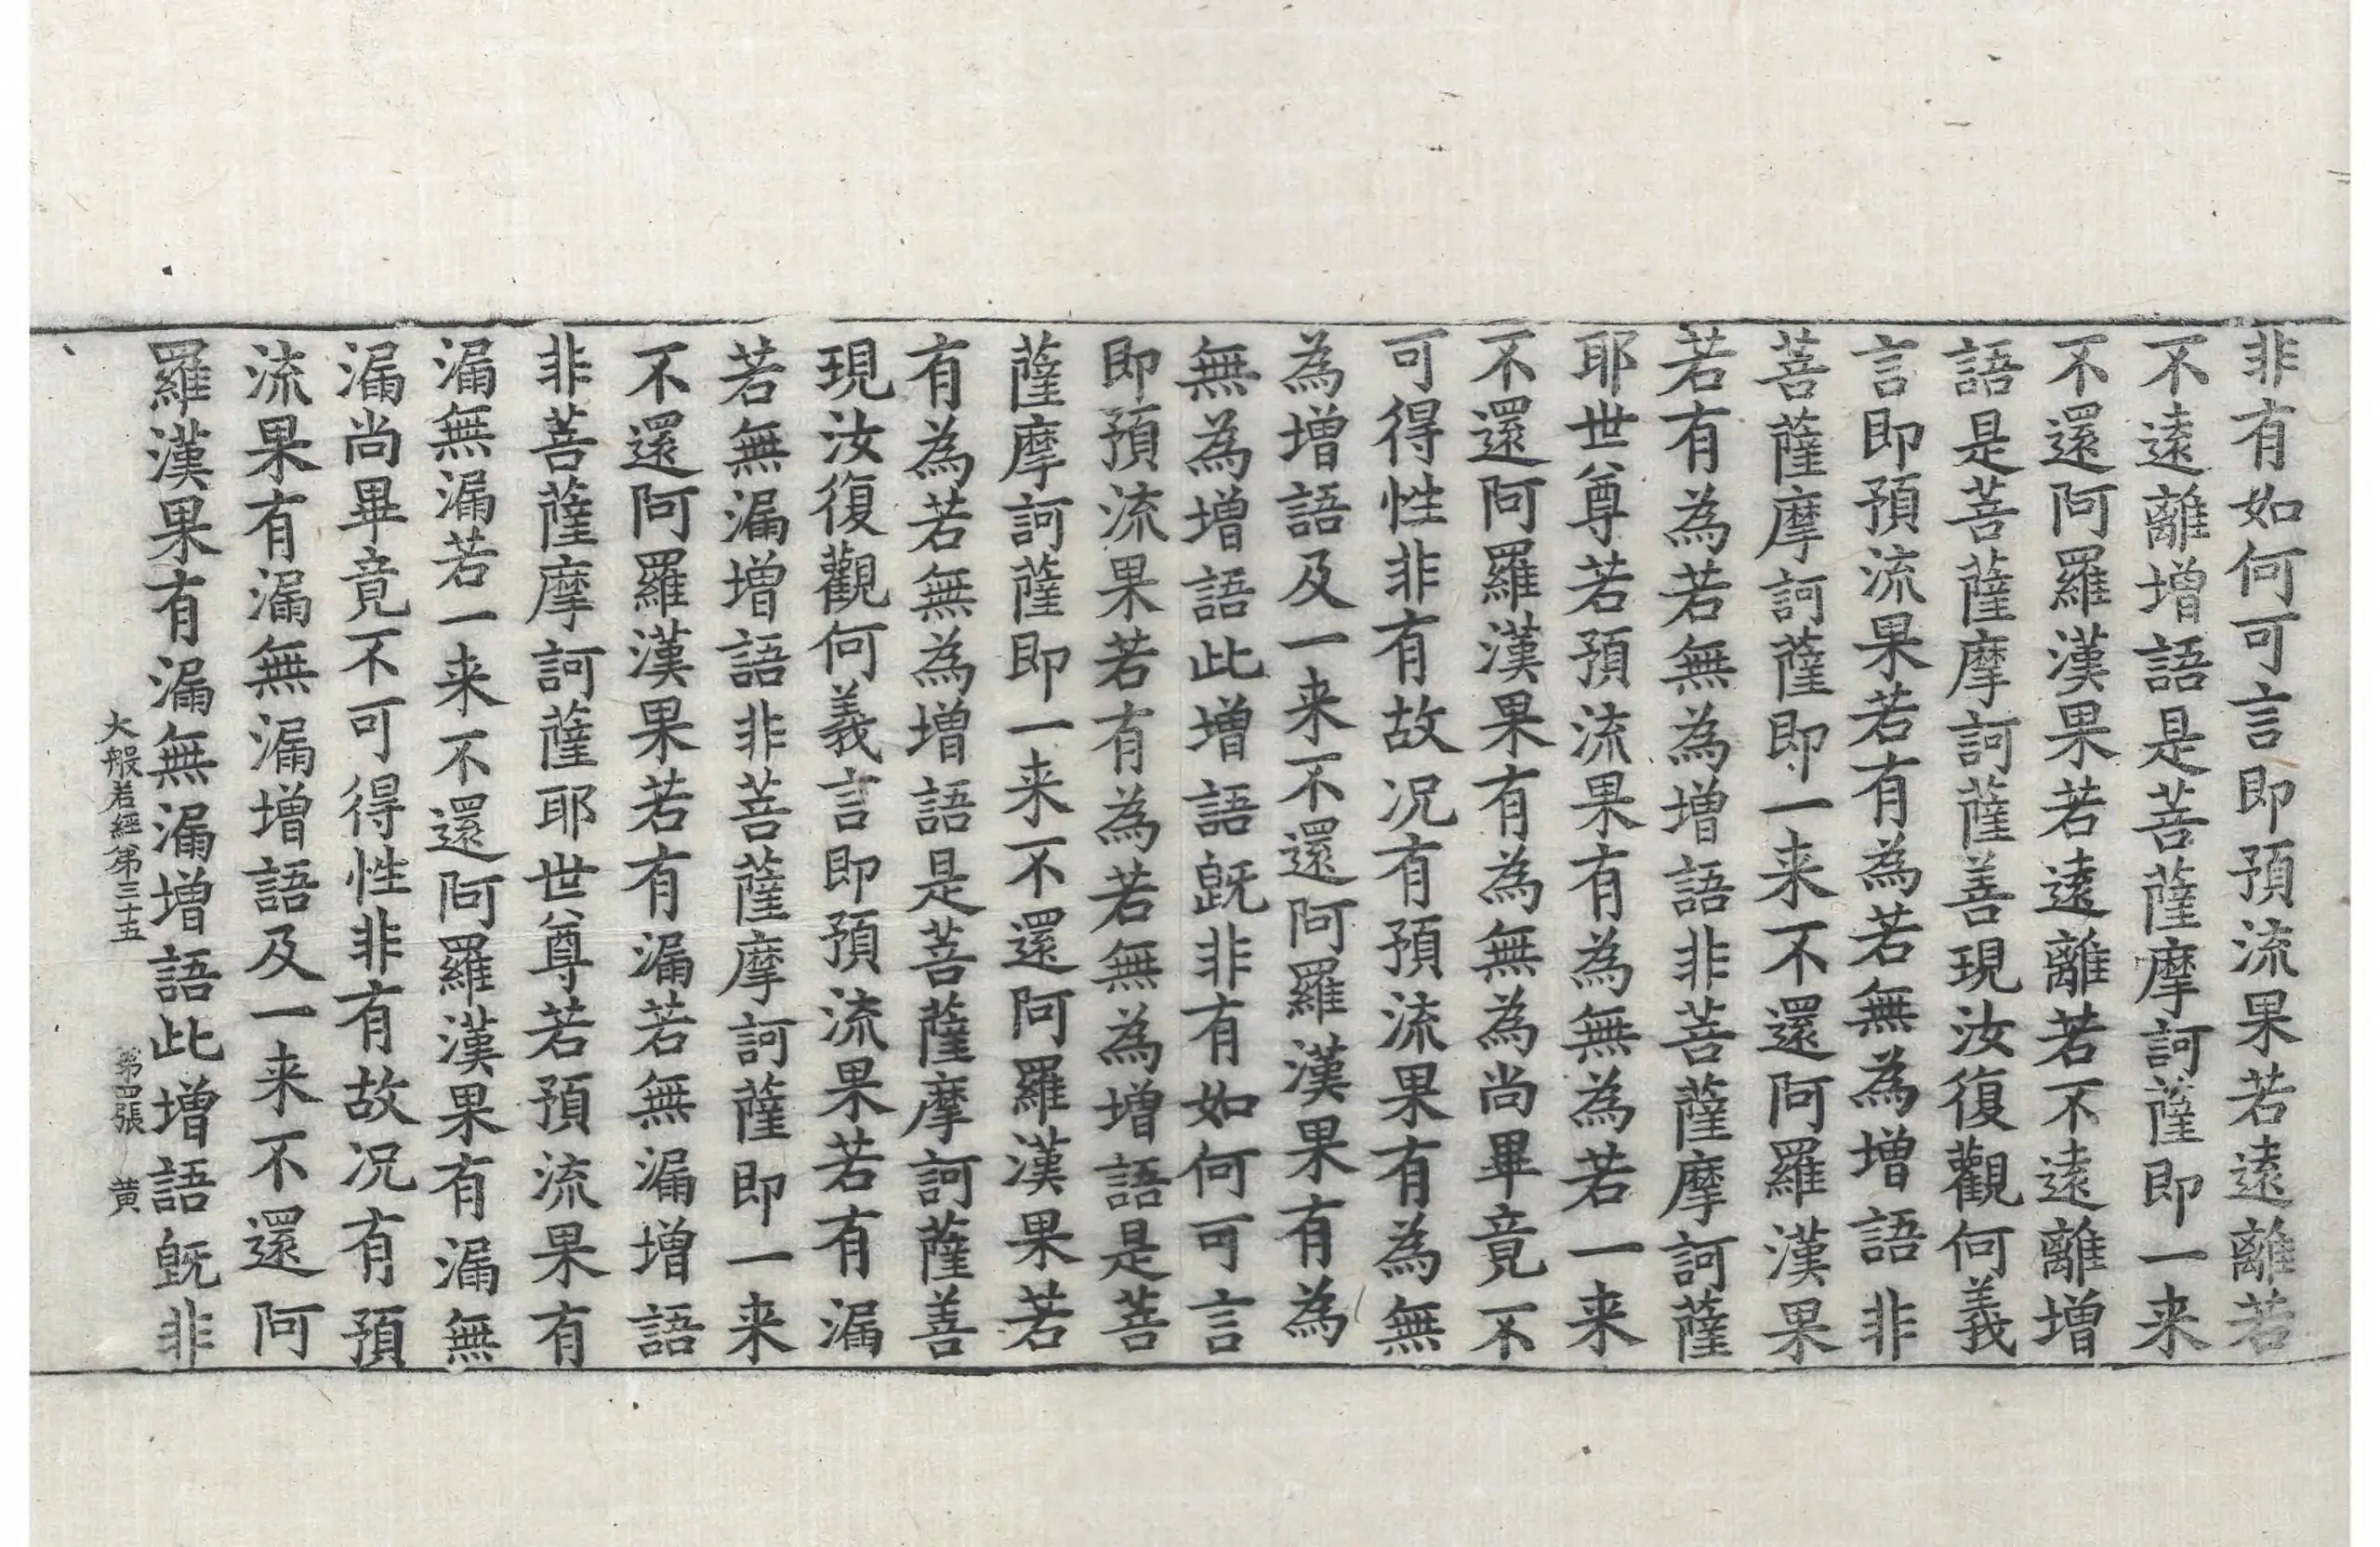 非有如何可言即預流果若遠離若
不遠離增語是菩薩摩訶薩即一来
不還阿羅漢果若遠離若不遠離增
語是菩薩摩訶薩善現汝復觀何義
言即預流果若有為若無為增語非
菩薩摩訶薩即一来不還阿羅漢果
若有為若無為增語非菩薩摩訶薩
耶世尊若預流果有為無為若一来
不還阿羅漢果有為無為尚畢竟不
可得性非有故况有預流果有為無
為增語及一来不還阿羅漢果有為
無為增語此增語旣非有如何可言
即預流果若有為若無為增語是菩
薩摩訶薩即一来不還阿羅漢果若
有為若無為增語是菩薩摩訶薩善
現汝復觀何義言即預流果若有漏
若無漏增語非菩薩摩訶薩即一来
不還阿羅漢果若有漏若無漏增語
非菩薩摩訶薩耶世尊若預流果有
漏無漏若一来不還阿羅漢果有漏無
漏尚畢竟不可得性非有故况有預
流果有漏無漏增語及一来不還阿
羅漢果有漏無漏增語此增語旣非
大般若經第三十五 第四張 黄